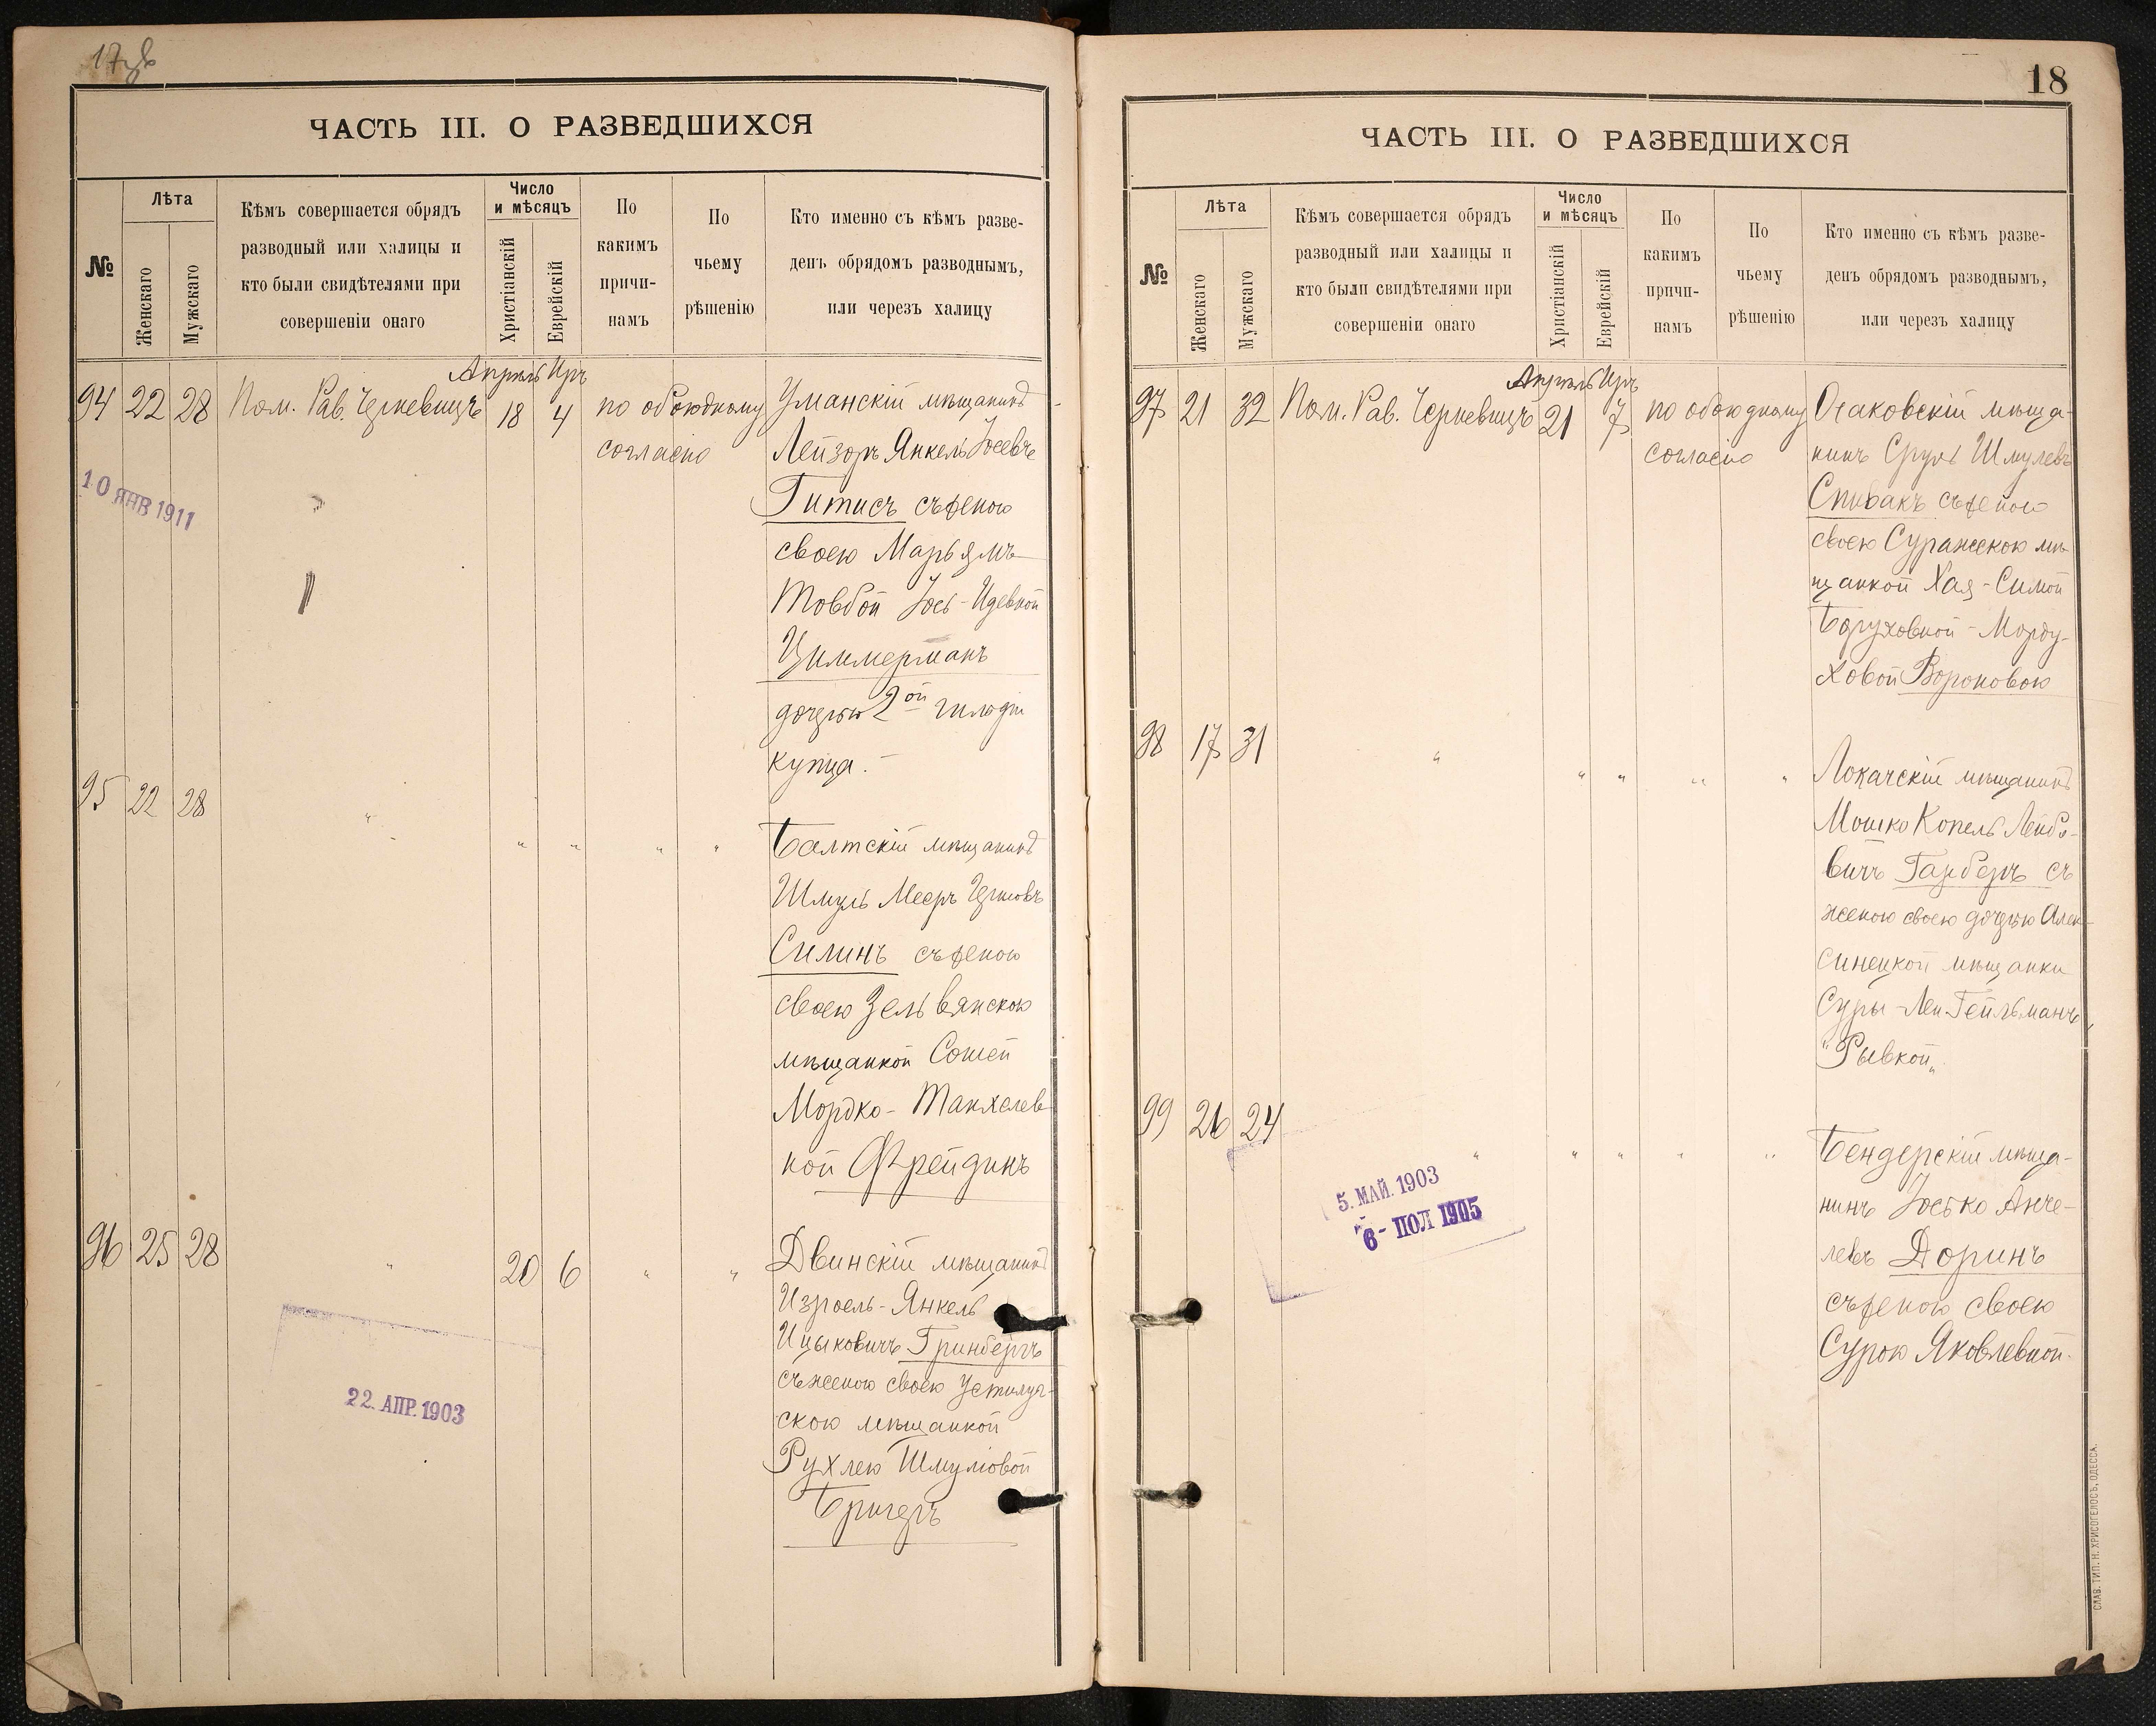 17об
ЧАСТЬ III. О РАЗВЕДШИХСЯ
№
Лѣта
Женскаго
Мужскаго
Кѣмъ совершается обрядъ
разводный или халицы и
кто были свидѣтелями при
совершеніи онаго
Число
и мѣсяцъ
Христіанскій
Еврейскій
По
какимъ
причи-
намъ
По
чьему
рѣшенію
Кто именно съ кѣмъ разве-
денъ обрядомъ разводнымъ,
или черезъ халицу
Апрѣль Иръ
94 22 28 Пом. Рав. Черкевицъ 18 4 по обоюдному Уманскій мѣщанинъ
согласію Лейзоръ Янкель Іосевъ
10 ЯНВ 1911
Гитисъ съ женою
своею Марьямъ
Товбой Іось-Идевной
Циммерманъ
дочерью 2ой гильдіи
купца.
95 22 28 " " " " "
Балтскій мѣщанинъ
Шмуль Мееръ
Силинъ съ женою
своею Зельвянскою
мѣщанкой Сошей
Мордко-Танхелев
ной Фрейдинъ
96 25 28 " 20 6 " " Двинскій мѣщанинъ
Изроель-Янкель
Ицыковичъ Гринбергъ
съ женою своею Устилуг-
скою мѣщанкой
22. АПР. 1903
Рухлею Шмулiовой
Бригеръ
18
ЧАСТЬ III. О РАЗВЕДШИХСЯ
№
Лѣта
Женскаго
Мужскаго
Кѣмъ совершается обрядъ
разводный или халицы и
кто были свидѣтелями при
совершеніи онаго
Число
и мѣсяцъ
Христіанскій
Еврейскій
По
какимъ
причи-
намъ
По
чьему
рѣшенію
Кто именно съ кѣмъ разве-
денъ обрядомъ разводнымъ,
или черезъ халицу
Апрѣль Иръ
97 21 32 Пом. Рав. Черкевицъ 21 7 по обоюдному Очаковскій мѣща-
согласію нинъ Сруль Шмулевъ
Спивакъ съ женою
своею Суражскою мѣ-
щанкой Хая-Симой
Боруховной-Морду-
ховой Вороновою
98 17 31 " " " " " Локачскій мѣщанинъ
Мошко Копель Лейбо-
вичъ Гарберъ съ
женою своею дочерью Алек-
синецкой мѣщанки
Суры-Леи Гейльманъ,
"Рывкой"
99 26 24 " " " " " Бендерскій мѣща-
нинъ Іосько Анче-
левъ Доринъ
съ женою своею
Сурою Яковлевной.
5. МАЙ. 1903
6 - ІЮЛ 1905
СЛАВ. ТИП. Н. ХРИСОГЕЛОСЪ, ОДЕССА.